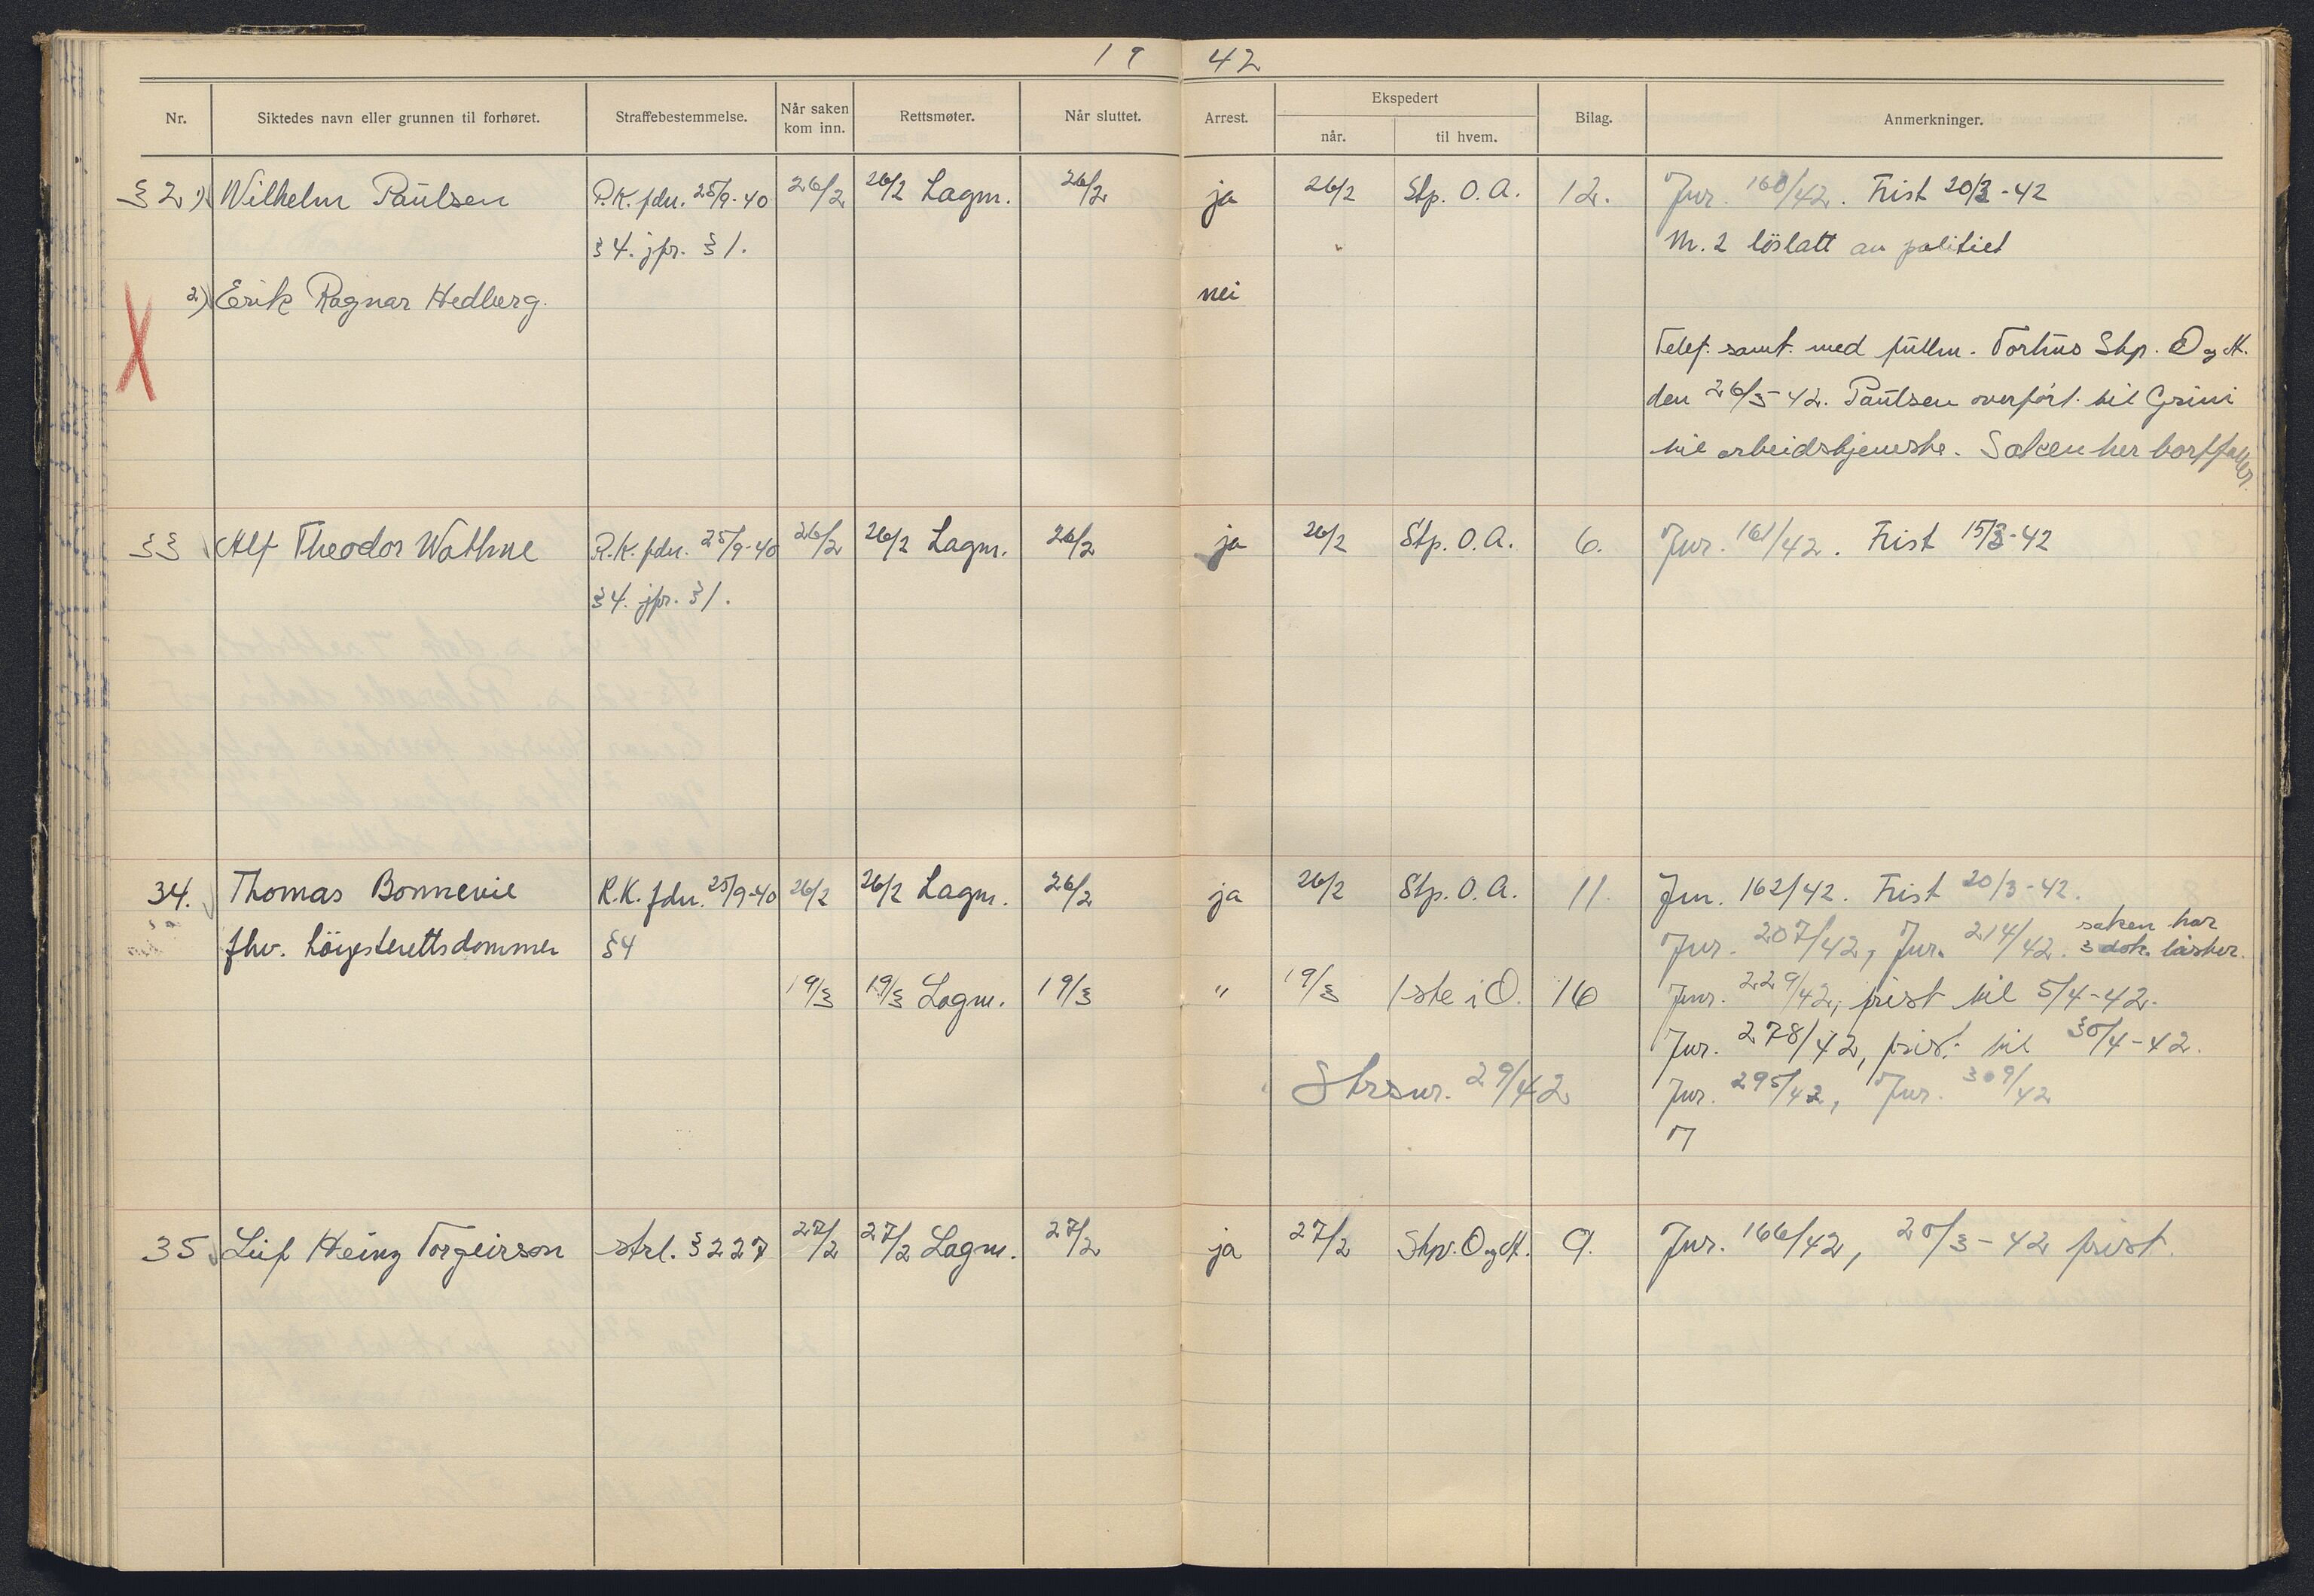 19 42
Nr. Siktedes navn eller grunnen til forhøret. Straffebestemmelse. Når saken kom inn. Rettsmøter. Når sluttet. Arrest. Ekspedert når. til hvem. Bilag. Anmerkninger.
32 1) Wilhelm Paulsen R.K. fdn. 25/9-40 26/2 26/2 Lagm. 26/2 ja 26/2 Stp. O.A. 12. Jnr. 160/42. Frist 20/3-42
§ 4. jfr. § 1. Nr. 2 löslatt av politiet
2) Erik Ragnar Hedberg. nei
Telef. samt. med fullm. Stp. O og A.
den 26/3-42. Paulsen overført til Grini
til arbeidstjeneste. Saken her bortfaller.
33 Alf Theodor Wathne R.K. fdn. 25/9-40 26/2 26/2 Lagm. 26/2 ja 26/2 Stp. O.A. 6. Jnr. 161/42. Frist 15/3-42
§ 4. jfr. § 1.
34. Thomas Bonnevie R.K. fdn. 25/9-40 26/2 26/2 Lagm. 26/2 ja 26/2 Stp. O.A. 11. Jnr. 162/42. Frist 20/3-42.
fhv. höyesterettsdommer § 4 Jnr. 207/42, Jnr. 214/42. saken har 3 dok.
19/3 19/3 Lagm. 19/3 " 19/3 1ste i O. 16 Jnr. 229/42, frist til 5/4-42.
Jnr. 278/42, frist til 30/4-42.
Strsnr. 29/42 Jnr. 295/42, Jnr. 309/42
35 Leif Heinz Torgeirson strl. § 227 27/2 27/2 Lagm. 27/2 ja 27/2 Stp. O og A. 9. Jnr. 166/42, 20/3-42 frist.